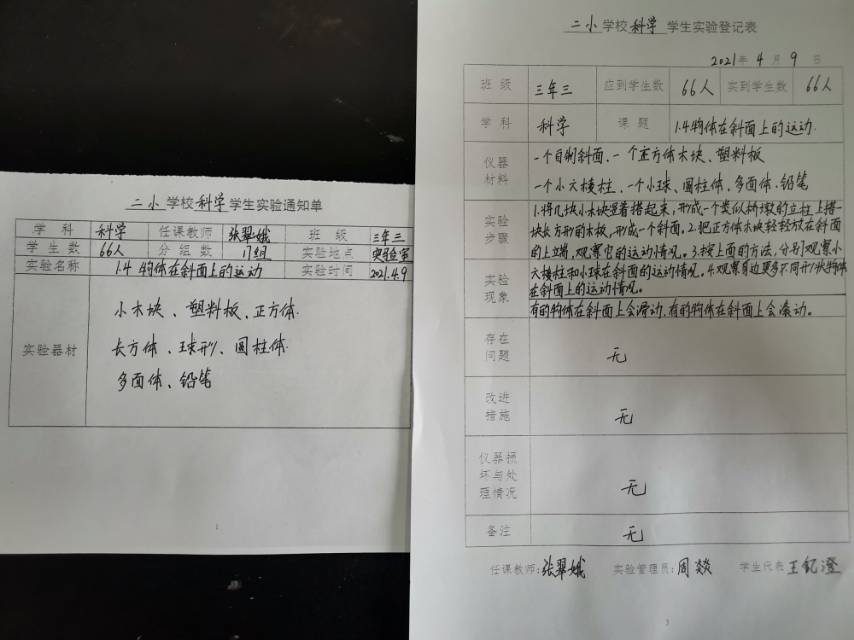 二小学校科学学生实验通知单
学科 科学 任课教师 张翠娥 班级 三年三
学生数 66人 分组数 17组 实验地点 实验室
实验名称 1.4 物体在斜面上的运动 实验时间 2021.4.9
实验器材
小木块、塑料板、正方体
长方体、球形、圆柱体
多面体、铅笔
1
二小学校科学学生实验登记表
2021年4月9日
班级 三年三 应到学生数 66人 实到学生数 66人
学科 科学 课题 1.4物体在斜面上的运动
仪器材料
一个自制斜面、一个正方体木块、塑料板
一个小六棱柱、一个小球、圆柱体、多面体、铅笔
实验步骤
1.将几块小木块叠着搭起来,形成一个类似桥墩的立柱上搭一
块长方形的木板,形成一个斜面。2.把正方体木块轻轻放在斜面
的上端,观察它的运动情况。3.按上面的方法,分别观察小
六棱柱和小球在斜面的运动情况。4.观察身边更多不同形状物体
在斜面上的运动情况。
实验现象
有的物体在斜面上会滑动,有的物体在斜面上会滚动。
存在问题 无
改进措施 无
仪器损坏与处理情况 无
备注 无
任课教师:张翠娥 实验管理员:周燚 学生代表 王钇澄
3